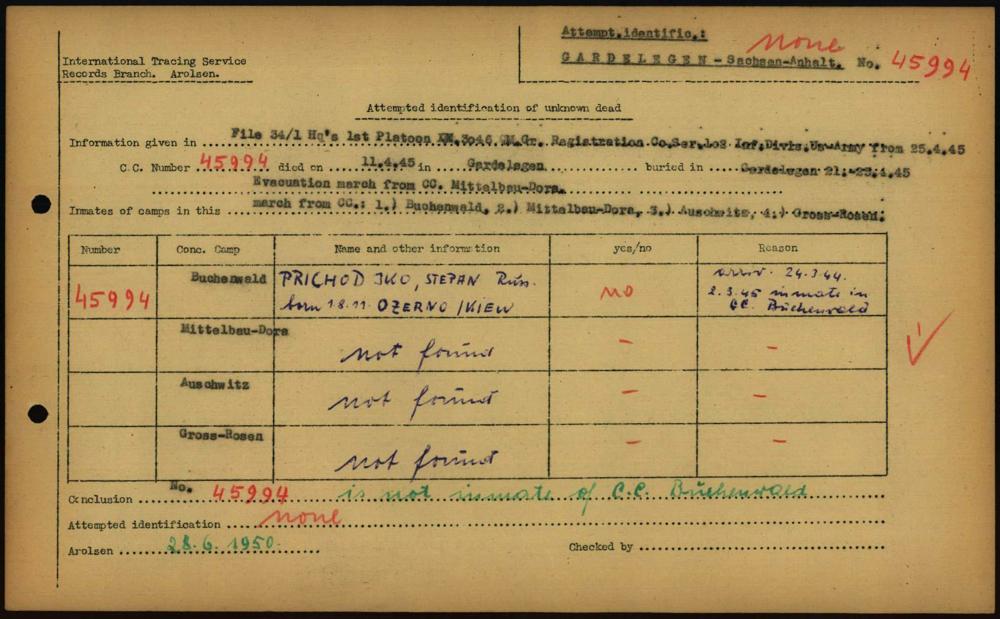 Attempt.identific.:
none
GARDELEGEN - Sachsen-Anhalt. No. 45994
International Tracing Service
Records Branch. Arolsen.
Attempted identification of unknown dead
Information given in File 34/1 Hq's 1st Platoon 3046 Gr. Registration Co. Ser. 102 Inf. Divis. Us-Army from 25.4.45
C.C. Number 45994 died on 11.4.45 in Gardelegen buried in Gardelegen 21.-23.4.45
Evacuation march from CC. Mittelbau-Dora.
Inmates of camps in this march from CC.: 1.) Buchenwald, 2.) Mittelbau-Dora, 3.) Auschwitz, 4.) Gross-Rosen.
Number Conc. Camp Name and other information yes/no Reason
45994 Buchenwald PRICHODJKO, STEPAN Russ. no arriv. 24.3.44.
born 1.8.11 OZERNO /KIEW 2.3.45 inmate in
CC. Buchenwald
Mittelbau-Dora not found - -
Auschwitz not found - -
Gross-Rosen not found - -
Conclusion No. 45994 is not inmate of C.C. Buchenwald
Attempted identification none
Arolsen 28.6.1950. Checked by